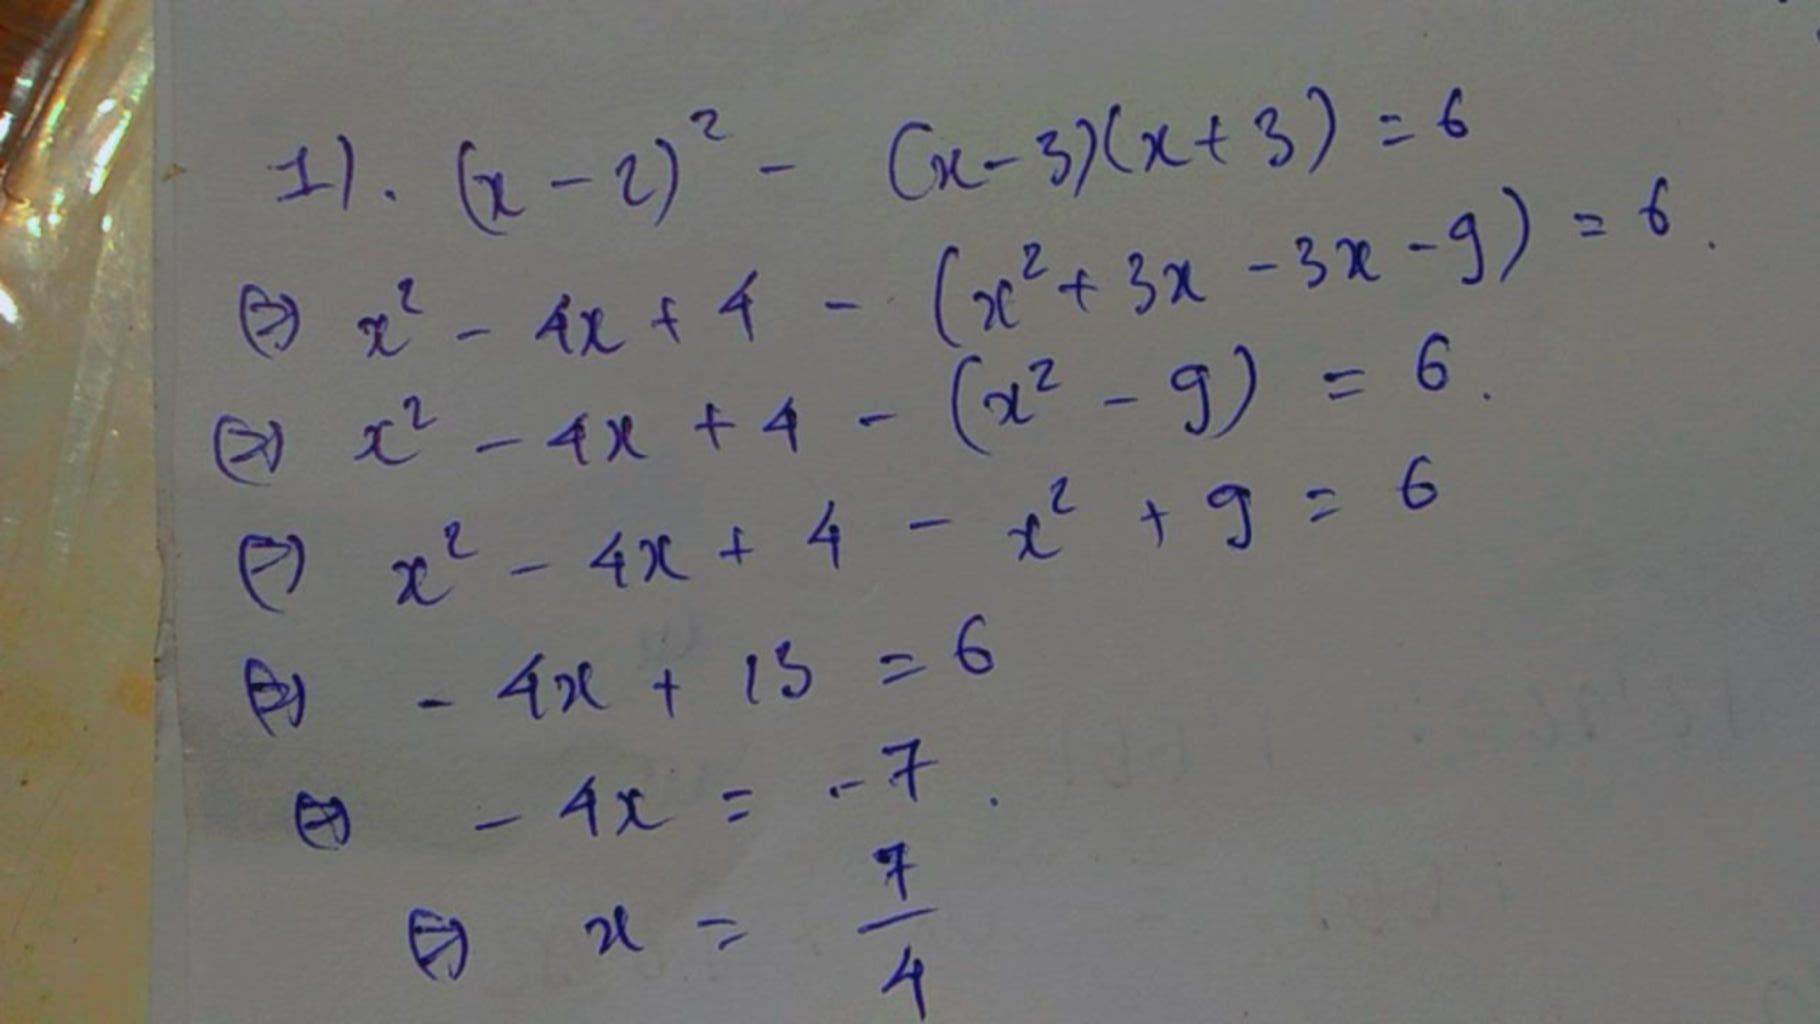 1). (x - 2)² - (x - 3)(x + 3) = 6
⇔ x² - 4x + 4 - (x² + 3x - 3x - 9) = 6.
⇔ x² - 4x + 4 - (x² - 9) = 6.
⇔ x² - 4x + 4 - x² + 9 = 6
⇔ - 4x + 13 = 6
⇔ - 4x = -7.
⇔ x = 7/4